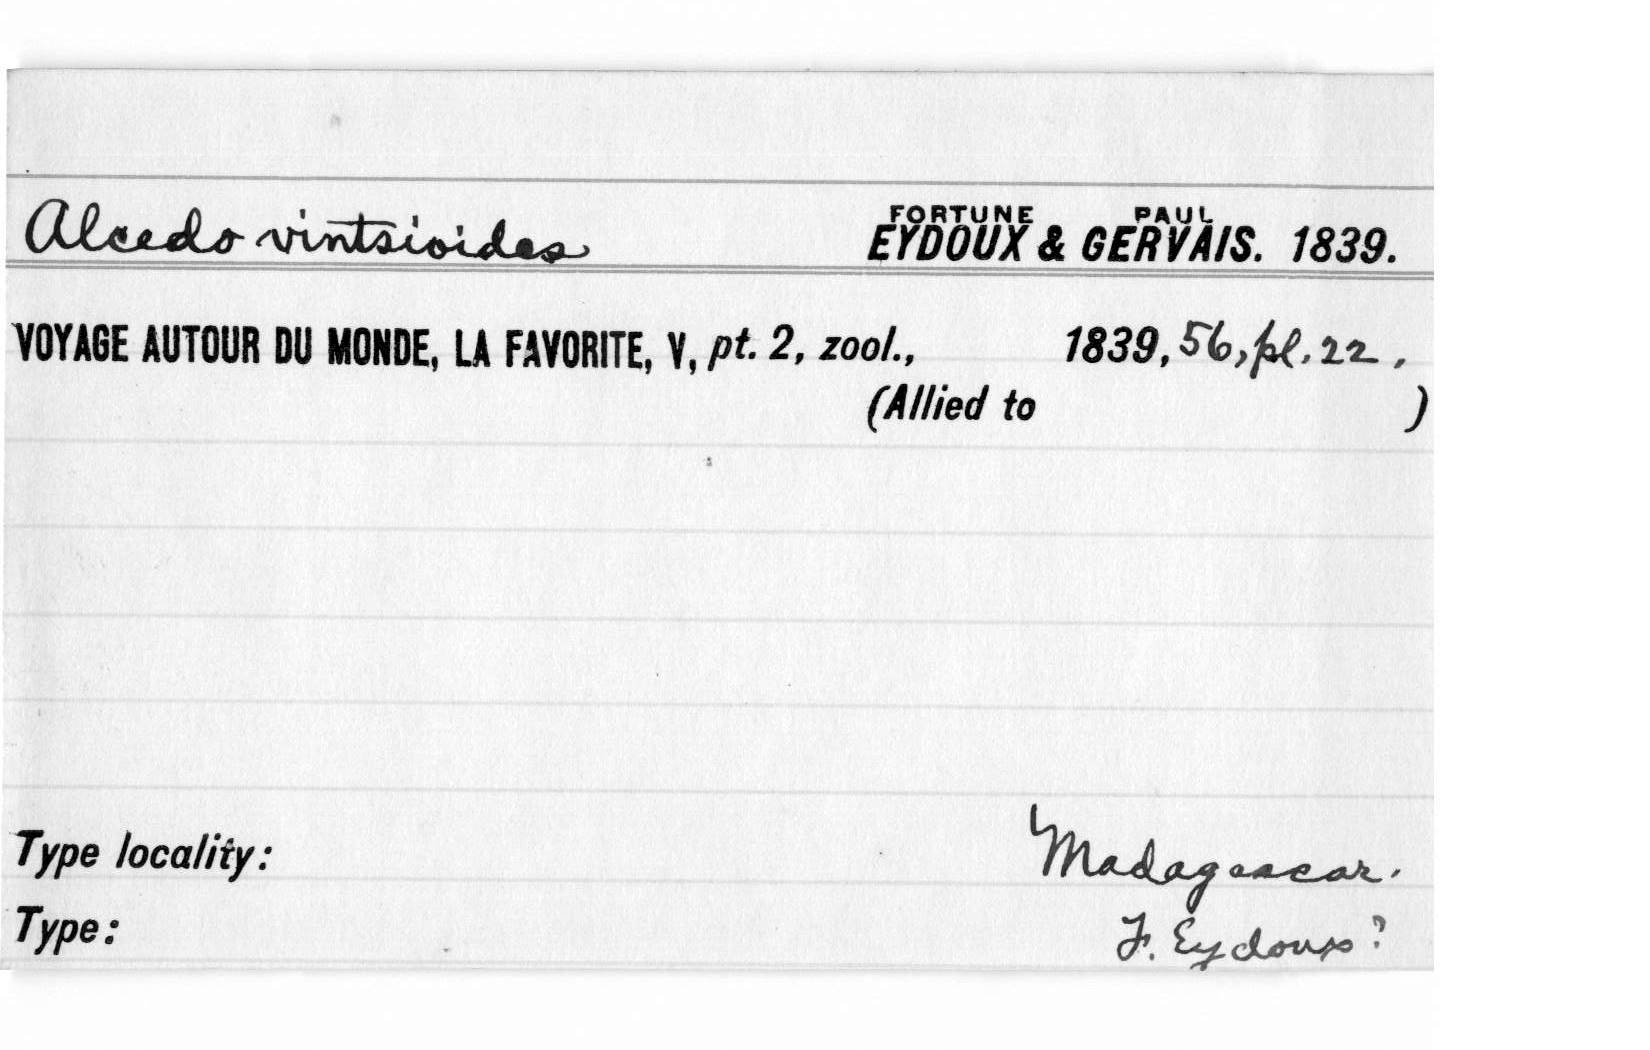 FORTUNE PAUL
Alcedo vintsioides EYDOUX & GERVAIS. 1839.
VOYAGE AUTOUR DU MONDE, LA FAVORITE, V, pt. 2, zool., 1839, 56, pl. 22,
(Allied to )
Type locality: Madagascar.
Type: F. Eydoux?